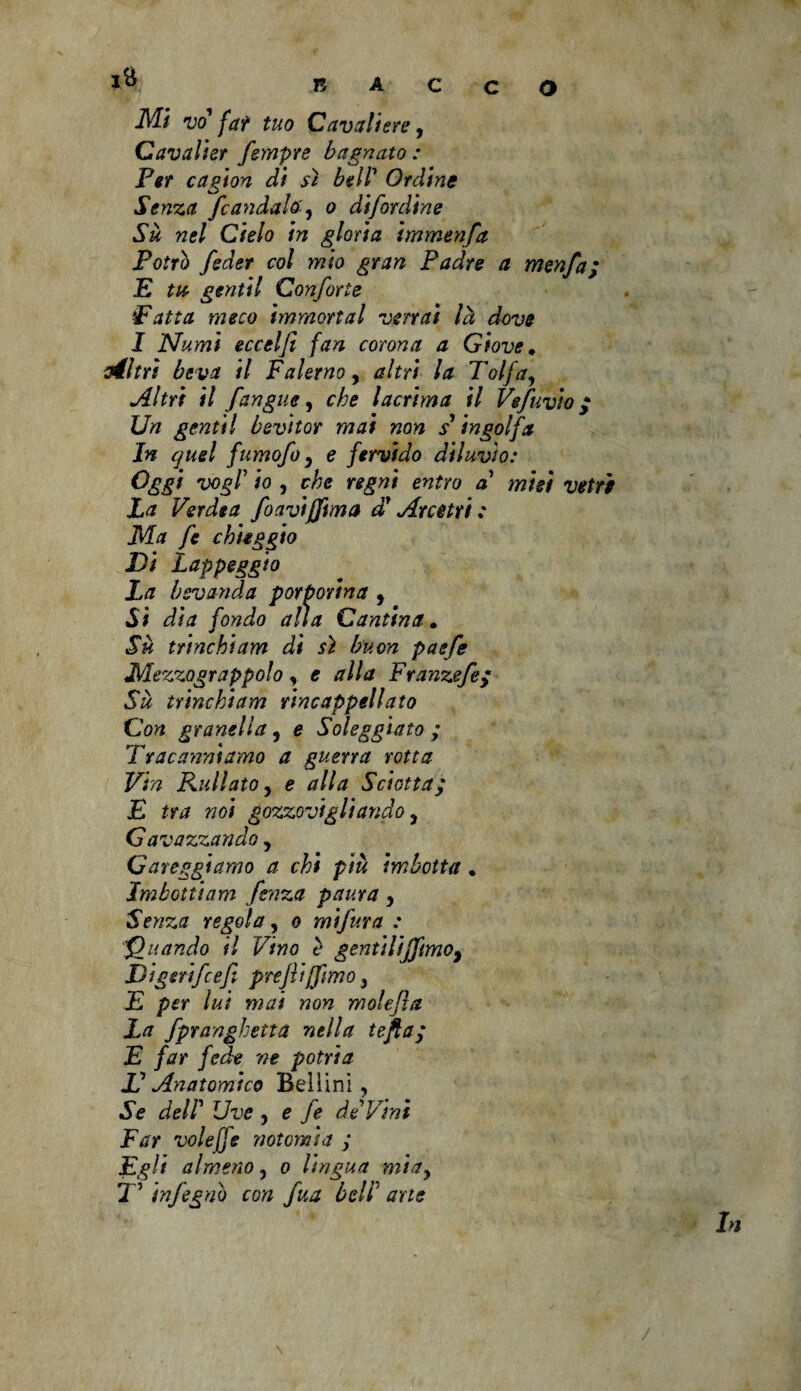 18 BACCO
Mi vo' far tuo Cavaliere,
Cavalier ſempre bagnato:
Per cagion di sì bell' Ordine
Senza ſcandalo, o diſordine
Sù nel Cielo in gloria immenſa
Potrò ſeder col mio gran Padre a menſa;
E tu gentil Conſorte
Fatta meco immortal verrai là dove
I Numi eccelſi fan corona a Giove.
Altri beva il Falerno, altri la Tolfa,
Altri il ſangue, che lacrima il Veſuvio;
Un gentil bevitor mai non s' ingolfa
In quel fumoſo, e fervido diluvio:
Oggi vogl' io, che regni entro a' miei vetri
La Verdea ſoaviſſima d' Arcetri:
Ma ſe chieggio
Di Lappeggio
La bevanda porporina,
Si dia fondo alla Cantina.
Sù trinchiam di sì buon paeſe
Mezzograppolo, e alla Franzeſe;
Sù trinchiam rincappellato
Con granella, e Soleggiato;
Tracanniamo a guerra rotta
Vin Rullato, e alla Sciotta;
E tra noi gozzovigliando,
Gavazzando,
Gareggiamo a chi più imbotta.
Imbottiam ſenza paura,
Senza regola, o miſura:
Quando il Vino è gentiliſſimo,
Digeriſceſi preſtiſſimo,
E per lui mai non moleſta
La ſpranghetta nella teſta;
E far fede ne potria
L' Anatomico Bellini,
Se dell' Uve, e ſe de' Vini
Far voleſſe notomia;
Egli almeno, o lingua mia,
T' inſegnò con ſua bell' arte
In